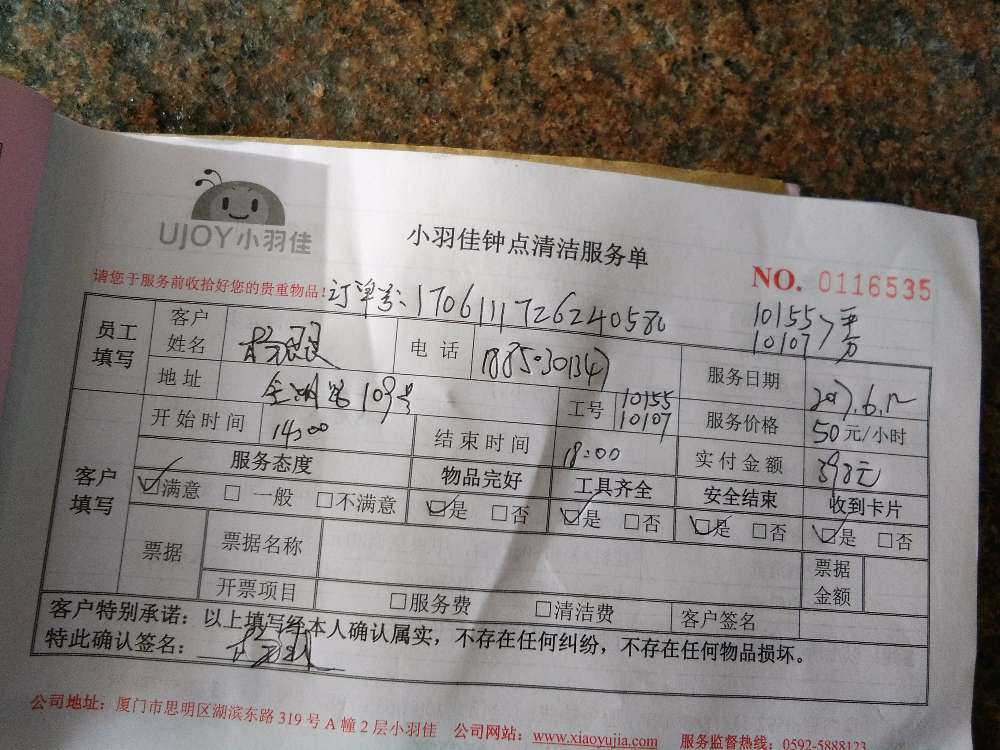 UJOY小羽佳
小羽佳钟点清洁服务单
NO. 0116535
请您于服务前收拾好您的贵重物品!
订单号:1706111726240580
10155
10107
员工填写
客户姓名
电话
服务日期
2017.6.12
地址
109号
工号
10155
10107
服务价格
50元/小时
客户填写
开始时间
14:00
结束时间
18:00
实付金额
398元
服务态度
物品完好
工具齐全
安全结束
收到卡片
☑满意 □一般 □不满意
☑是 □否
☑是 □否
☑是 □否
☑是 □否
票据
票据名称
票据金额
开票项目
□服务费 □清洁费
客户签名
客户特别承诺:以上填写经本人确认属实,不存在任何纠纷,不存在任何物品损坏。
特此确认签名:
公司地址:厦门市思明区湖滨东路319号A幢2层小羽佳 公司网站:www.xiaoyujia.com 服务监督热线:0592-5888123